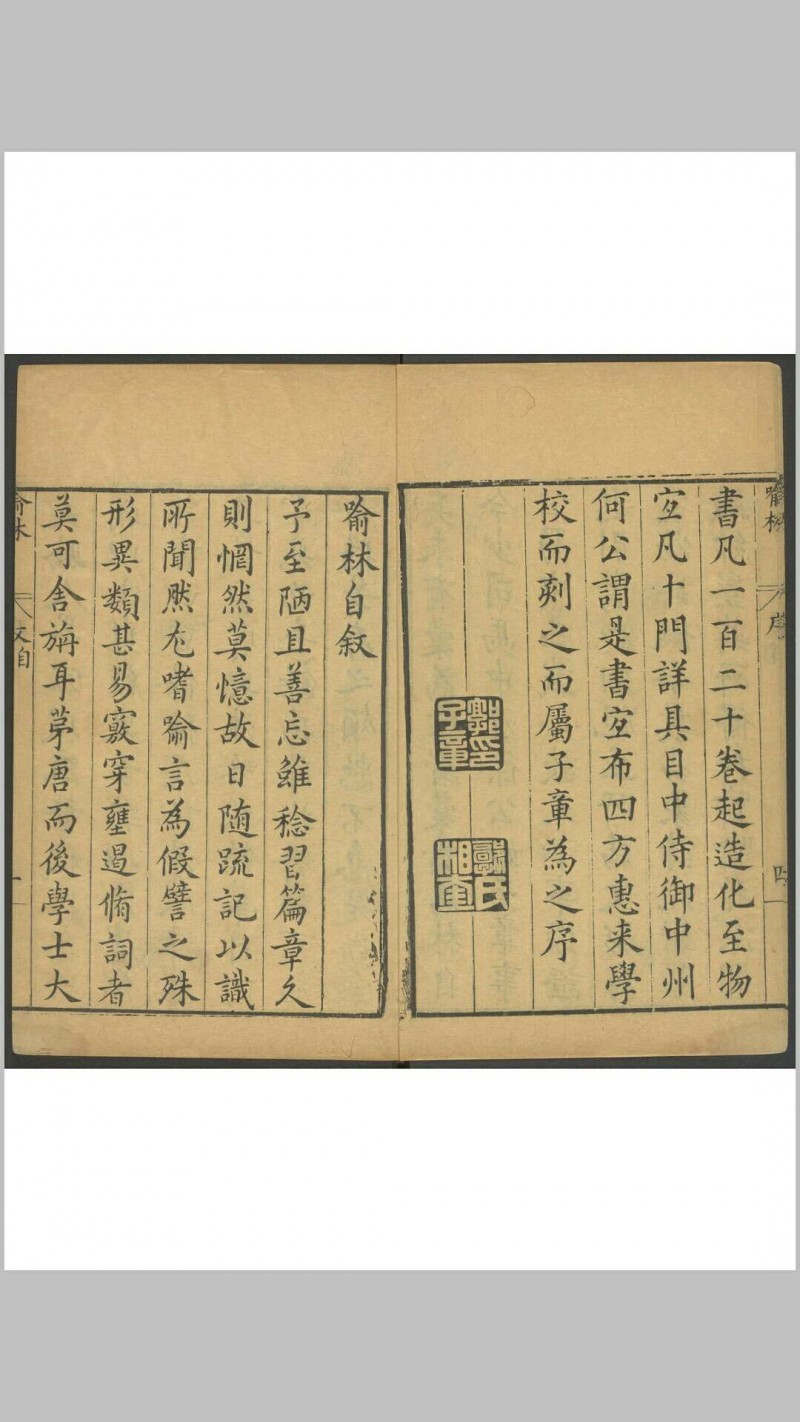 喻林
序
書凡一百二十卷起造化至物
宐凡十門詳具目中侍御中州
何公謂是書宐布四方惠来學
校而刻之而屬子章為之序
喻林自叙
予至陋且善忘雖稔習篇章久
則惘然莫憶故日随疏記以識
所聞然尤嗜喻言為假譬之殊
形異類甚易竅穿壅遏脩詞者
莫可舍旃耳苐唐而後學士大
喻林
自
一